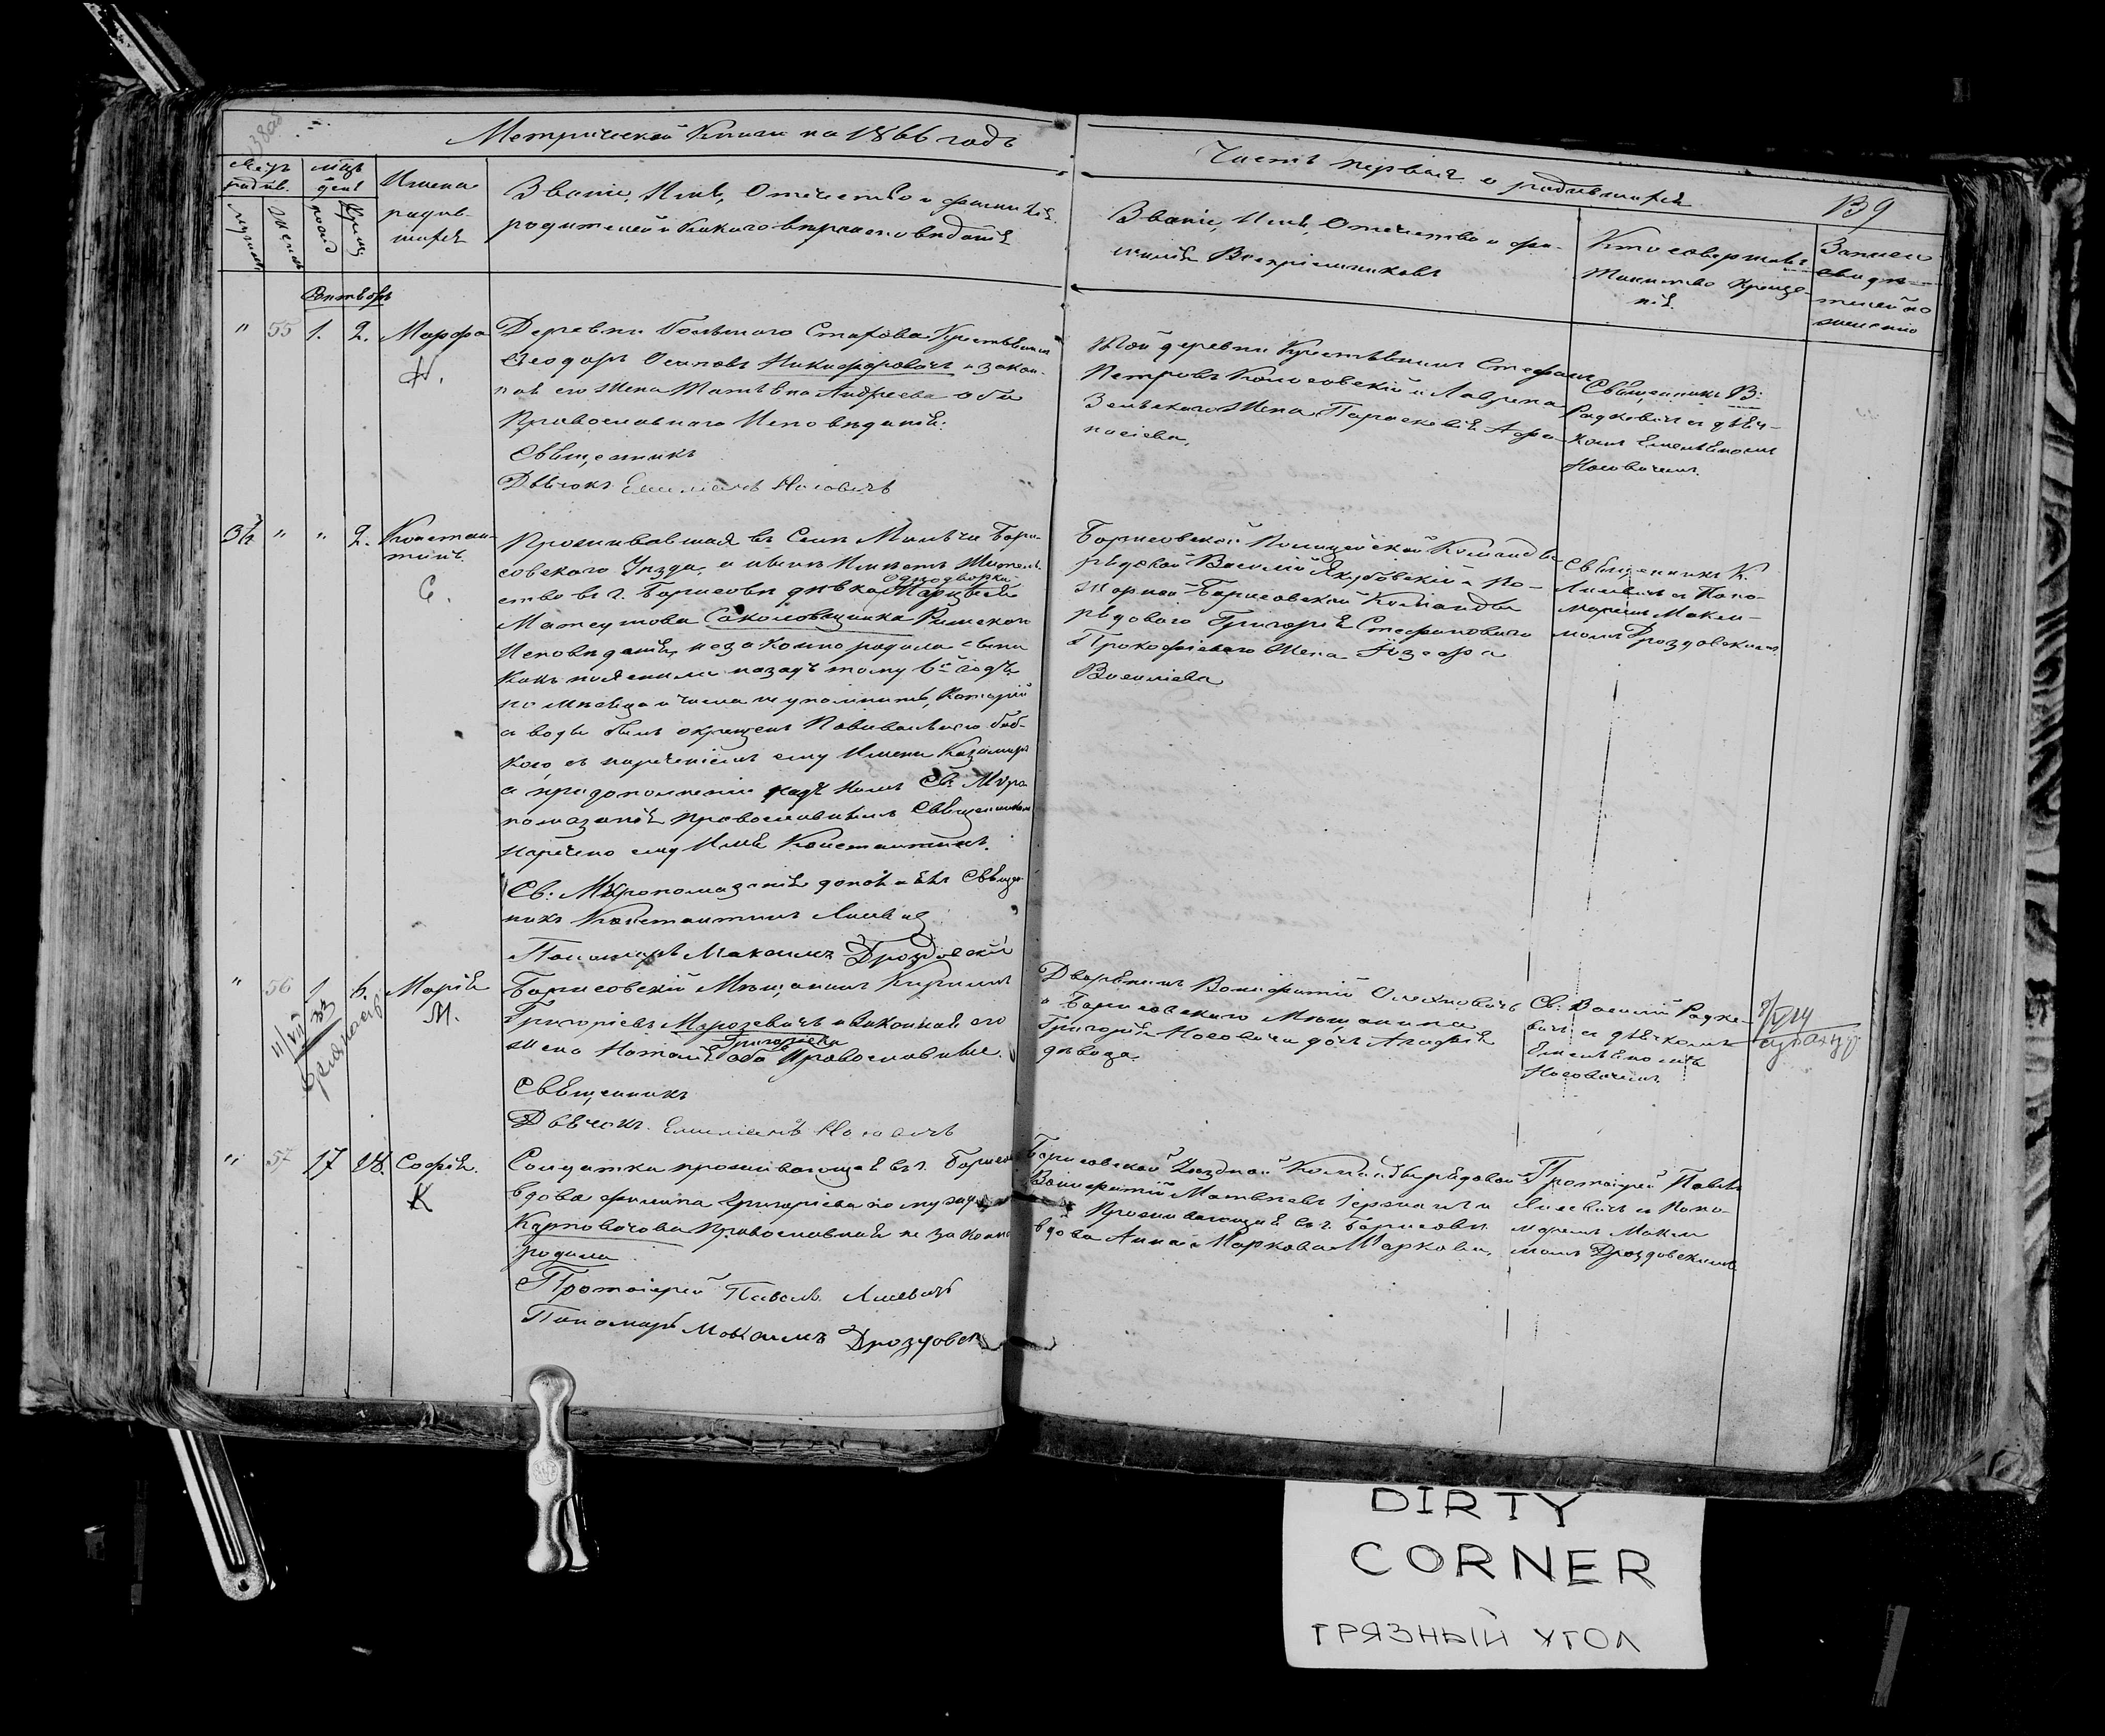 Метрической Книги на 1866 годъ
Часть первая о родившихся
139
мѣц день
Имена родив- шихся
Званіе, Имя, Отечество и фамилія
родителей и Какого вѣроисповѣданія
Званіе, Имя, Отечество и фа-
милія Воспріемниковъ
Кто совершалъ
Таинство Креще-
нія
Сентябрь
" 55 1. 2. Марфа
Деревни Большого Стахова Крестьянинъ
Ѳеодоръ Осиповъ Никифоровичъ и закон-
ная его жена Татьяна Андреева оба
Православнаго Исповѣданія.
Священникъ
Дьячокъ Емиліанъ Носовичъ
Той деревни Крестьянинъ Стефанъ
Петровъ Колосовскій и Лаврена
жена Параскевія Афа-
насіева.
Священникъ В:
Радкевичъ съ дьяч-
комъ Емельяномъ
Носовичемъ.
" " 2. Констан-
тинъ.
С.
Проживавшая въ Селѣ Бори-
совского Уѣзда, а нынѣ Имѣетъ Житель-
ство въ г. Борисовѣ дѣвка
однодворка
Соколовщинка Римского
Исповѣданія, незаконно родила сына
назадъ тому 6ть годъ
но мѣсяца и числа не упомнитъ, Который
съ воды былъ окрещенъ Повивальною баб-
кою, съ нареченіемъ ему Имени Казимиръ
а при дополненіи надъ нимъ Св: Мѵро-
помазанія православнымъ Священникомъ
Наречено ему Имя Константинъ.
Св: Мѵропомазаніе дополнялъ Священ-
никъ Константинъ Лисевичъ
Пономарь Максимъ Дроздовскій
Борисовской Полицейской Команды
рядовой Василій Якубовскій и По-
жарной Борисовской Команды
рядового Григорія Стефановича
Прокофіевого жена Іозефа
Васильева
Священникъ К.
Лисевичъ съ Поно-
маремъ Макси-
момъ Дроздовскимъ
" 56 1 6. Марія
М.
Борисовскій Мѣщанинъ Кирилъ
Григоріевъ Марозевичъ и законная его
жена Наталія Григоріева оба Православные.
Священникъ
Дьячокъ. Емиліанъ Носовичъ
Дворянинъ Бонифатій Олехновичъ
и Борисовского Мѣщанина
Григорія Носовича дочь Агафія
дѣвица
Св: Василій Радке-
вичъ съ дьячкомъ
Емельяномъ
Носовичемъ
" 57 17 18. Софія.
К
Солдатка проживающая въ г. Борисовѣ
вдова Григоріева по мужу
Карповичова Православная незаконно
родила
Протоіерей Павелъ Лисевичъ
Пономарь Максимъ Дроздовск
Борисовской Уѣздной Команды рядовой
Бонифатій Матвѣевъ и
Проживающая въ г. Борисовѣ
вдова Анна Маркова Маркова.
Протоіерей Павелъ
Лисевичъ съ Поно-
маремъ Макси-
момъ Дроздовскимъ
DIRTY
CORNER
ГРЯЗНЫЙ УГОЛ